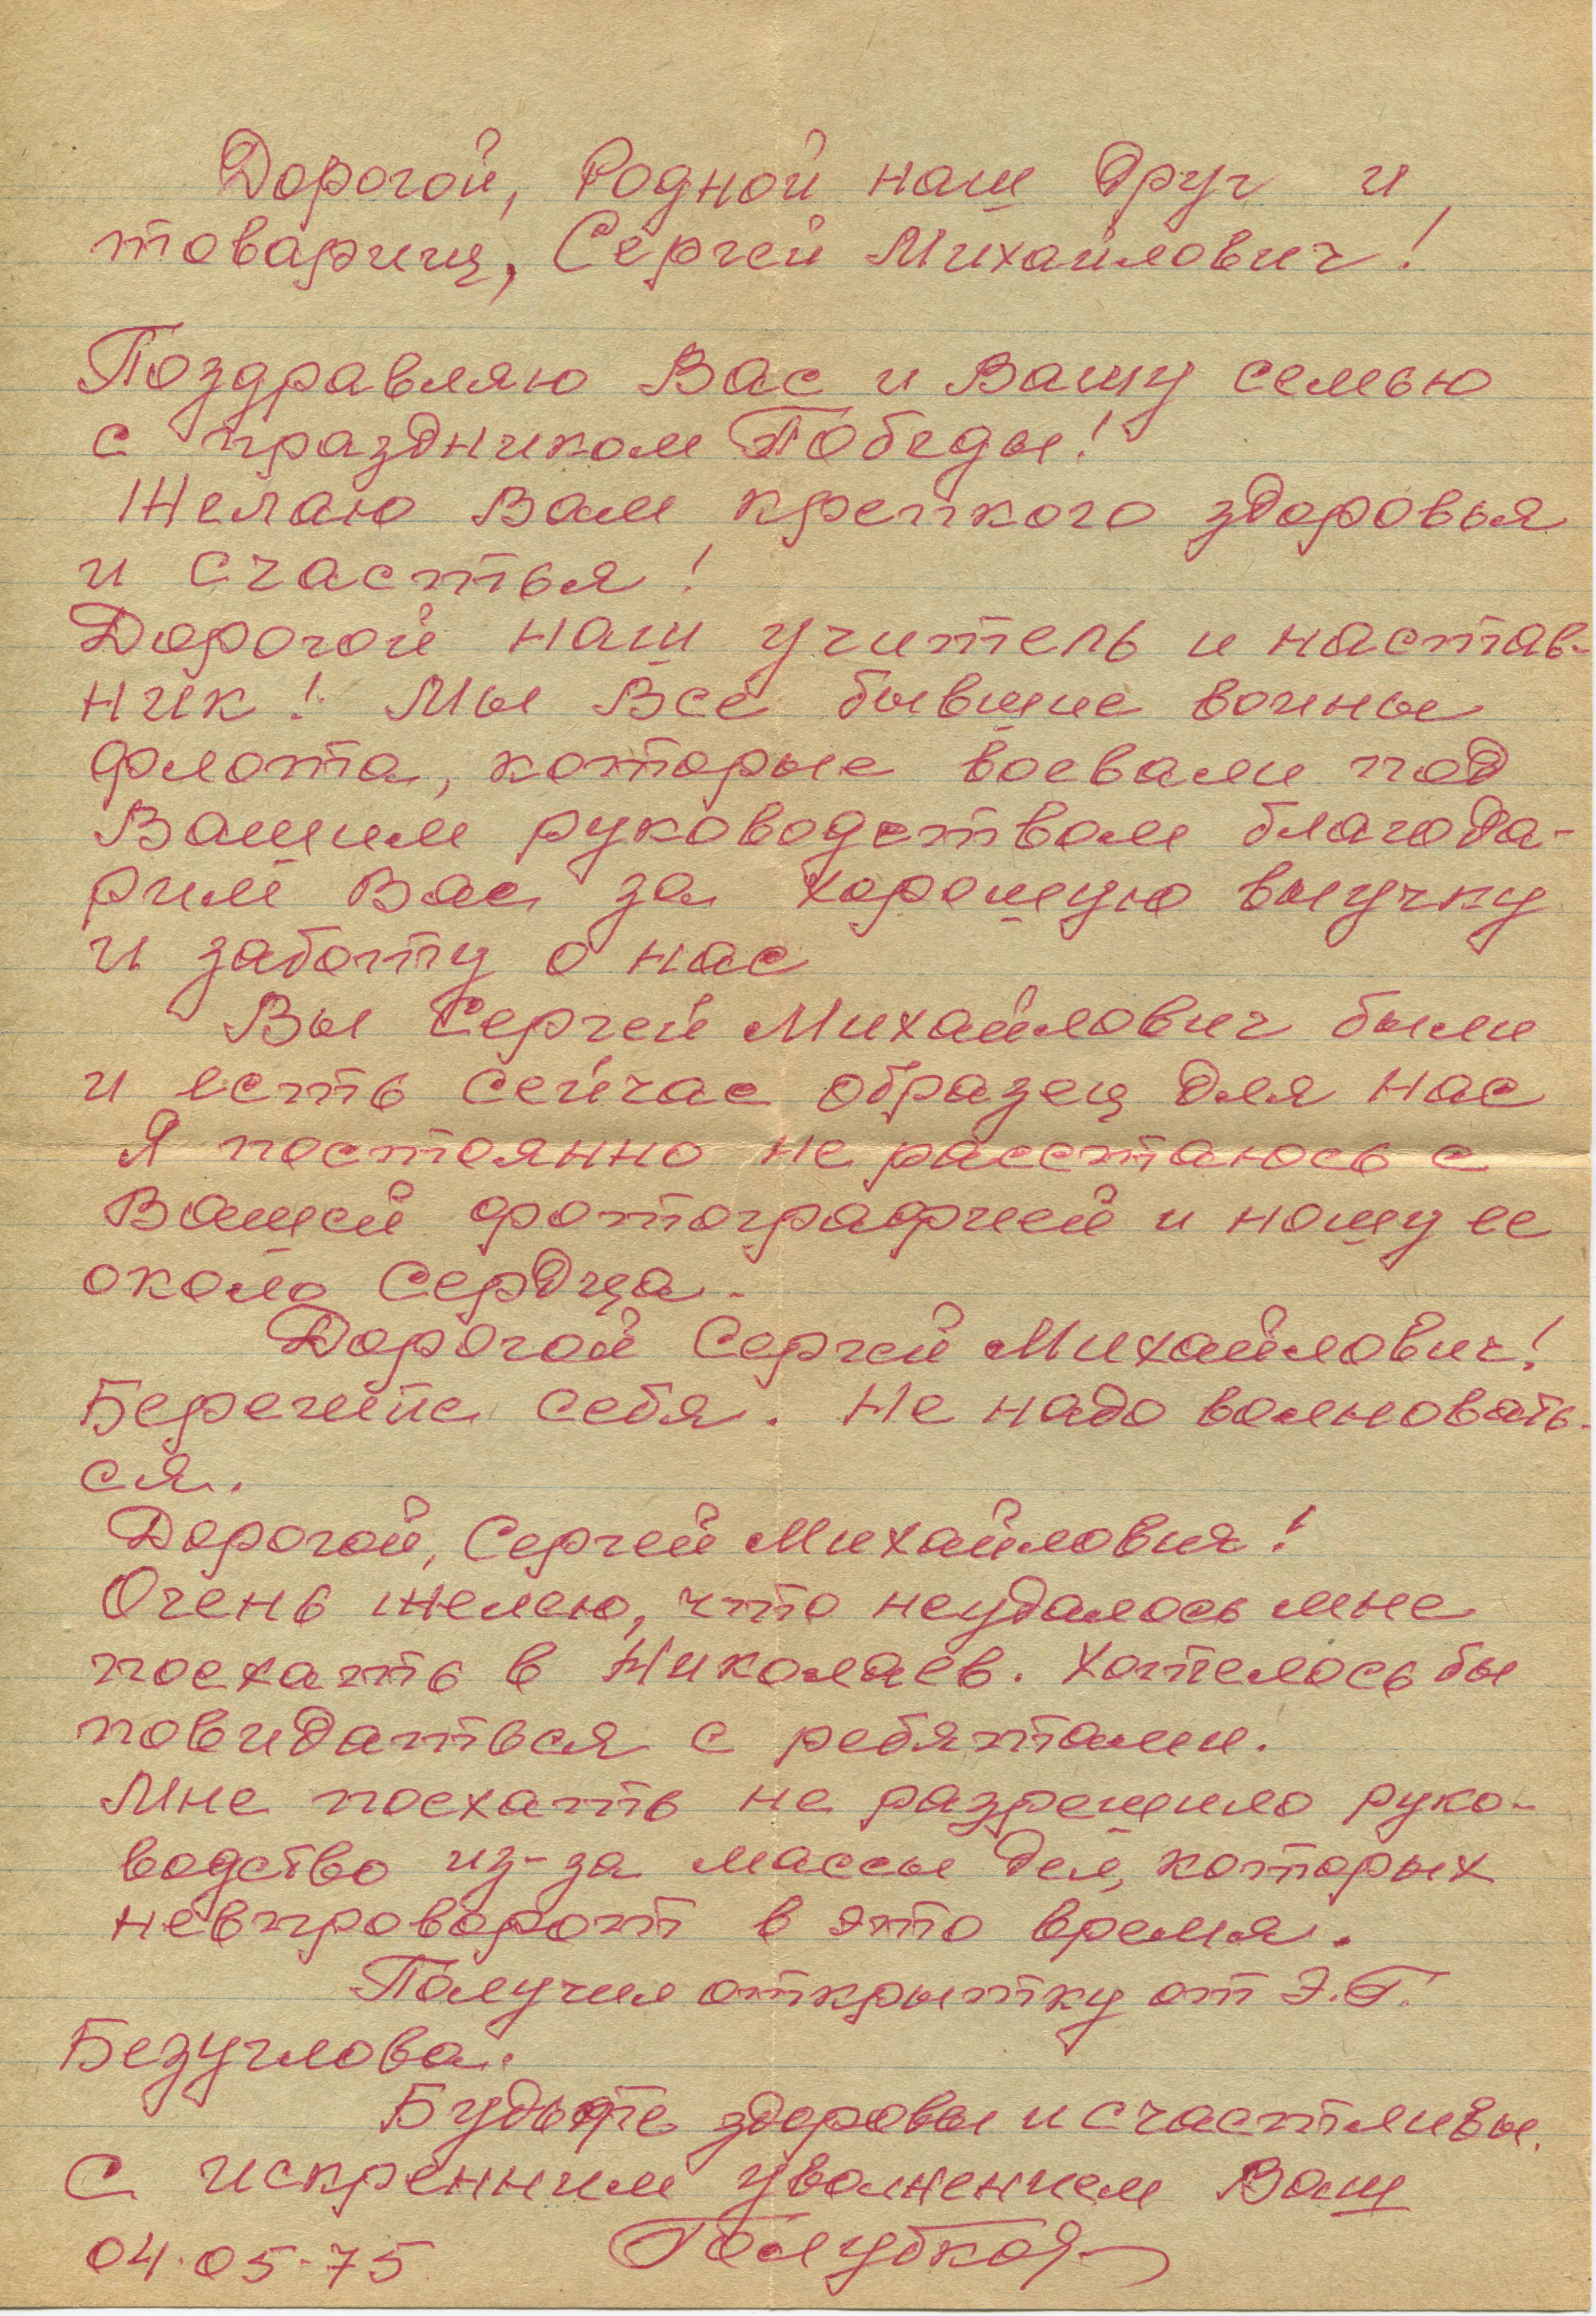 Дорогой, Родной наш друг и
товарищ, Сергей Михайлович!
Поздравляю Вас и Вашу семью
с праздником Победы!
Желаю Вам крепкого здоровья
и счастья!
Дорогой наш учитель и настав-
ник! Мы Все бывшие воины
флота, которые воевали под
Вашим руководством благода-
рим Вас за хорошую выучку
и заботу о нас
Вы Сергей Михайлович были
и есть сейчас образец для нас
Я постоянно не расстаюсь с
Вашей фотографией и ношу ее
около сердца.
Дорогой Сергей Михайлович!
Берегите себя. Не надо волновать-
ся.
Дорогой, Сергей Михайлович!
Очень жалею, что неудалось мне
поехать в Николаев. Хотелось бы
повидаться с ребятами.
Мне поехать не разрешило руко-
водство из-за массы дел, которых
невпроворот в это время.
Получил открытку от Э.Г.
Безуглова.
Будьте здоровы и счастливы.
С искренним уважением Ваш
04.05-75 Голубков